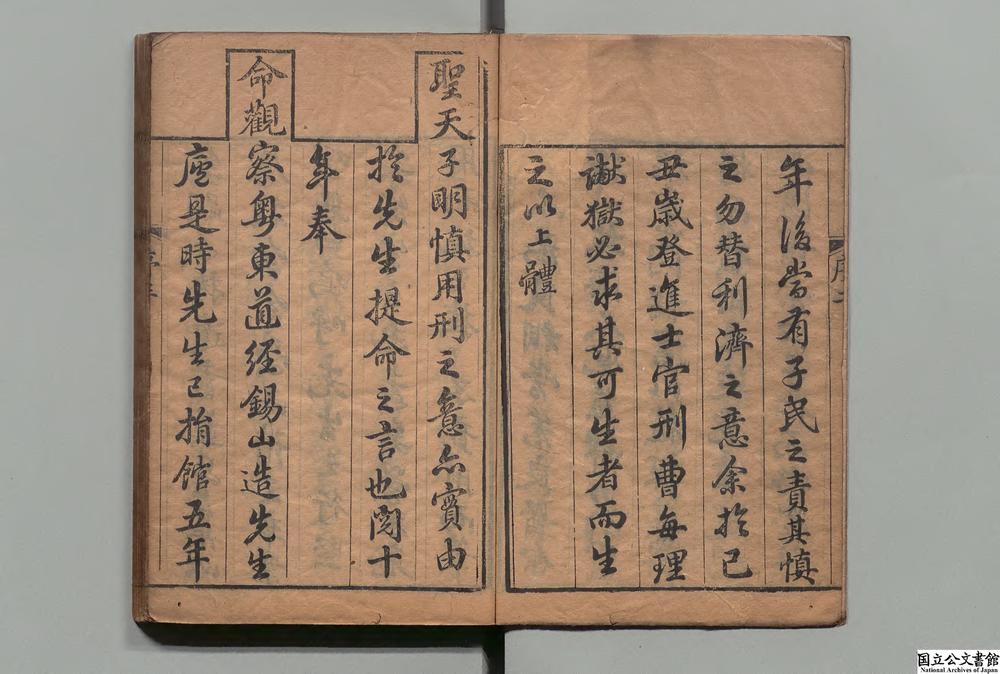 年後當有子民之責其慎
之勿替利濟之意余於己
丑歲登進士官刑曹每理
讞獄必求其可生者而生
之以上體
聖天子明慎用刑之意亦實由
於先生提命之言也閱十
年奉
命觀察粤東道經錫山造先生
廬是時先生已捐館五年
国立公文書館
National Archives of Japan